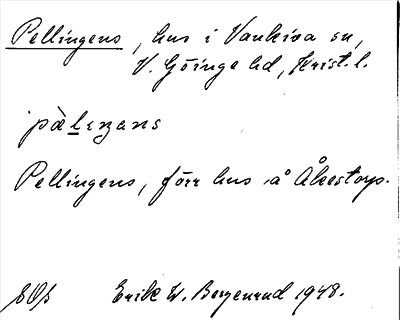 Pellingens, hus i Vankiva sn,
V. Göinge hd, Krist. l.
pàlıŋans
Pellingens, förr hus å Åkestorp.
Erik W. Bergenrud 1948.